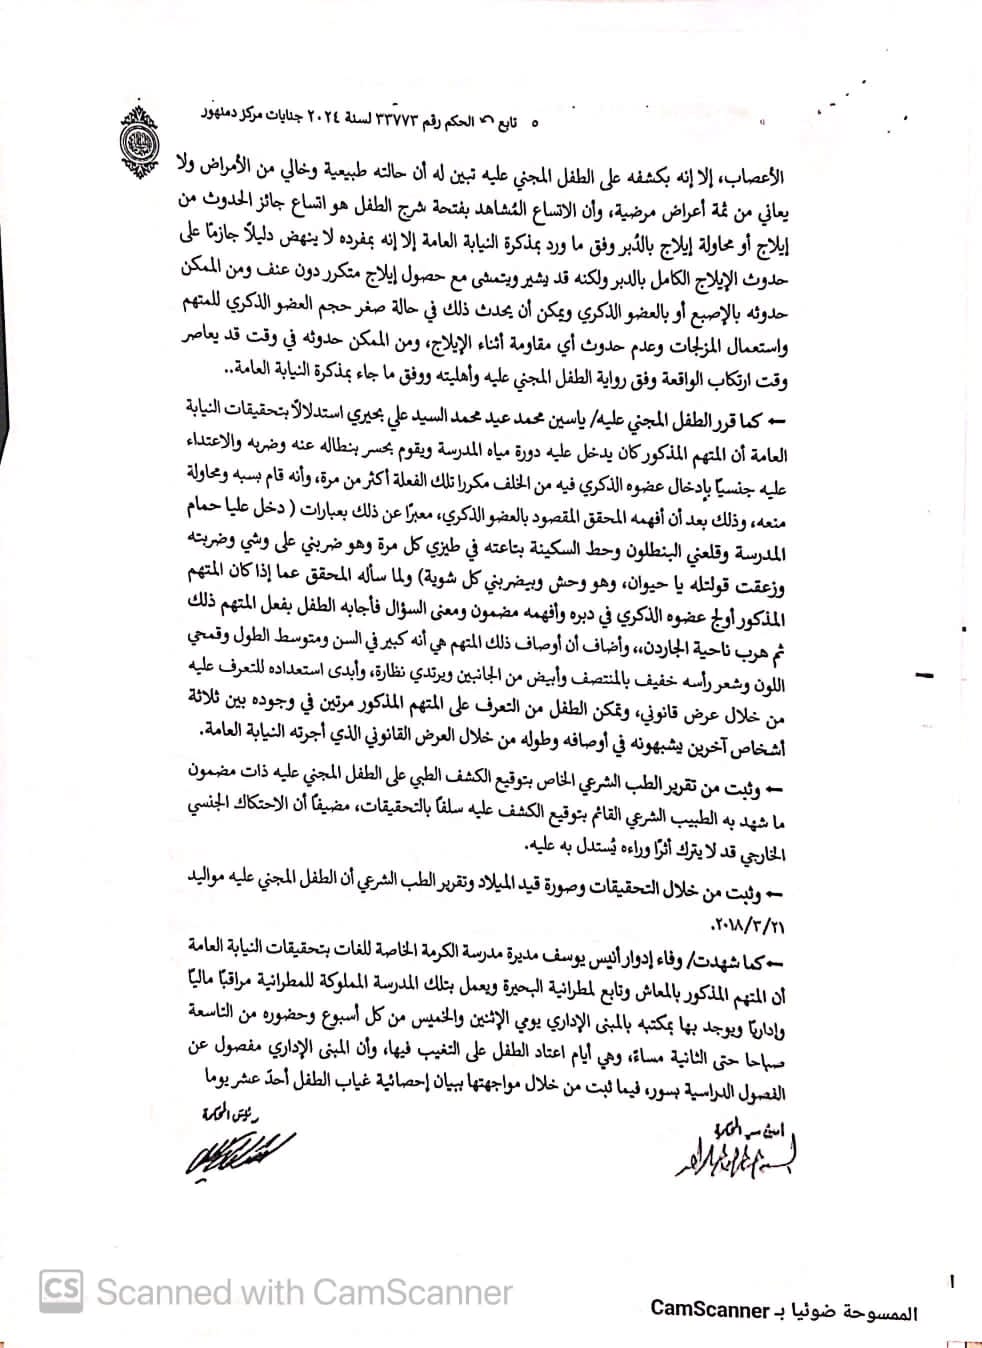 ٥ تابع الحكم رقم ٣٣٧٧٣ لسنة ٢٠٢٤ جنايات مركز دمنهور
الأعصاب، إلا إنه بكشفه على الطفل المجني عليه تبين له أن حالته طبيعية وخالي من الأمراض ولا
يعاني من ثمة أعراض مرضية، وأن الاتساع المُشاهد بفتحة شرج الطفل هو اتساع جائز الحدوث من
إيلاج أو محاولة إيلاج بالدُبر وفق ما ورد بمذكرة النيابة العامة إلا إنه بمفرده لا ينهض دليلاً جازمًا على
حدوث الإيلاج الكامل بالدبر ولكنه قد يشير ويتمشى مع حصول إيلاج متكرر دون عنف ومن الممكن
حدوثه بالإصبع أو بالعضو الذكري ويمكن أن يحدث ذلك في حالة صغر حجم العضو الذكري للمتهم
واستعمال المزلجات وعدم حدوث أي مقاومة أثناء الإيلاج، ومن الممكن حدوثه في وقت قد يعاصر
وقت ارتكاب الواقعة وفق رواية الطفل المجني عليه وأهليته ووفق ما جاء بمذكرة النيابة العامة..
← كما قرر الطفل المجني عليه/ ياسين محمد عيد محمد السيد علي بحيري استدلالاً بتحقيقات النيابة
العامة أن المتهم المذكور كان يدخل عليه دورة مياه المدرسة ويقوم بحسر بنطاله عنه وضربه والاعتداء
عليه جنسيًا بإدخال عضوه الذكري فيه من الخلف مكررا تلك الفعلة أكثر من مرة، وأنه قام بسبه ومحاولة
منعه، وذلك بعد أن أفهمه المحقق المقصود بالعضو الذكري، معبرًا عن ذلك بعبارات ( دخل عليا حمام
المدرسة وقلعني البنطلون وحط السكينة بتاعته في طيزي كل مرة وهو ضربني على وشي وضربته
وزعقت قولتله يا حيوان، وهو وحش وبيضربني كل شوية) ولما سأله المحقق عما إذا كان المتهم
المذكور أولج عضوه الذكري في دبره وأفهمه مضمون ومعنى السؤال فأجابه الطفل بفعل المتهم ذلك
ثم هرب ناحية الجاردن،، وأضاف أن أوصاف ذلك المتهم هي أنه كبير في السن ومتوسط الطول وقمحي
اللون وشعر رأسه خفيف بالمنتصف وأبيض من الجانبين ويرتدي نظارة، وأبدى استعداده للتعرف عليه
من خلال عرض قانوني، وتمكن الطفل من التعرف على المتهم المذكور مرتين في وجوده بين ثلاثة
أشخاص آخرين يشبهونه في أوصافه وطوله من خلال العرض القانوني الذي أجرته النيابة العامة.
← وثبت من تقرير الطب الشرعي الخاص بتوقيع الكشف الطبي على الطفل المجني عليه ذات مضمون
ما شهد به الطبيب الشرعي القائم بتوقيع الكشف عليه سلفًا بالتحقيقات، مضيفًا أن الاحتكاك الجنسي
الخارجي قد لا يترك أثرًا وراءه يُستدل به عليه.
← وثبت من خلال التحقيقات وصورة قيد الميلاد وتقرير الطب الشرعي أن الطفل المجني عليه مواليد
٢٠١٨/٣/٢١.
← كما شهدت/ وفاء إدوار أنيس يوسف مديرة مدرسة الكرمة الخاصة للغات بتحقيقات النيابة العامة
أن المتهم المذكور بالمعاش وتابع لمطرانية البحيرة ويعمل بتلك المدرسة المملوكة للمطرانية مراقبًا ماليًا
وإداريًا ويوجد بها بمكتبه بالمبنى الإداري يومي الإثنين والخميس من كل أسبوع وحضوره من التاسعة
صباحا حتى الثانية مساءً، وهي أيام اعتاد الطفل على التغيب فيها، وأن المبنى الإداري مفصول عن
الفصول الدراسية بسور، فيما ثبت من خلال مواجهتها ببيان إحصائية غياب الطفل أحدَ عشر يوما
امين سر المحكمة
رئيس المحكمة
CS Scanned with CamScanner
الممسوحة ضوئيا بـ CamScanner